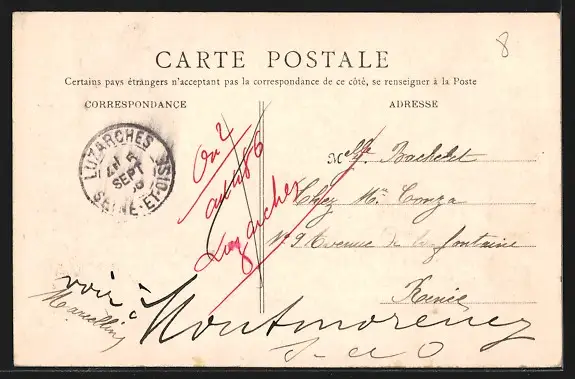 8
CARTE POSTALE
Certains pays étrangers n'acceptant pas la correspondance de ce côté, se renseigner à la Poste
CORRESPONDANCE
ADRESSE
LUZARCHES
SEPT
SEINE-ET-OISE
On 2
Luzarches
Melle Bachelet
Chez Mr
N° 9 Avenue de la fontaine
voir à
Montmorency
S-et-O